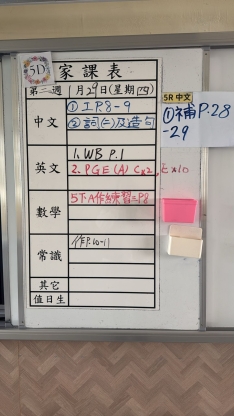 5D 家課表
第二週 1月29日(星期四)
中文 ①工P.8-9
②詞(二)及造句
5R 中文
①補P.28
-29
英文 1. WB P.1
2. PGE(A) C×2, E×10
數學 5下A作練習二P8
常識 作P.10-11
其它
值日生